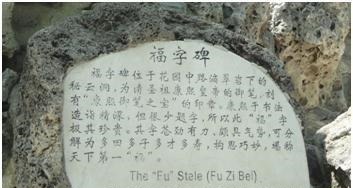 福字碑
福字碑位于花园中路滴翠岩下的
秘云洞，为清圣祖康熙皇帝的御笔，刻
有“康熙御笔之宝”的印章。康熙于书法
造诣精深，但很少题字，所以此“福”字
极其珍贵。其字苍劲有力，颇具气势，可分
解为多田多子多才多寿，构思巧妙，堪称
天下第一“福”。
The "Fu" Stele (Fu Zi Bei)